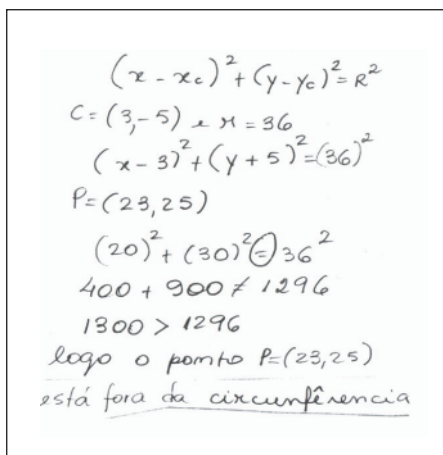 (x - xc)² + (y - yc)² = R²
C = (3, -5) e r = 36
(x - 3)² + (y + 5)² = (36)²
P = (23, 25)
(20)² + (30)² = 36²
400 + 900 ≠ 1296
1300 > 1296
logo o ponto P = (23, 25)
está fora da circunferência